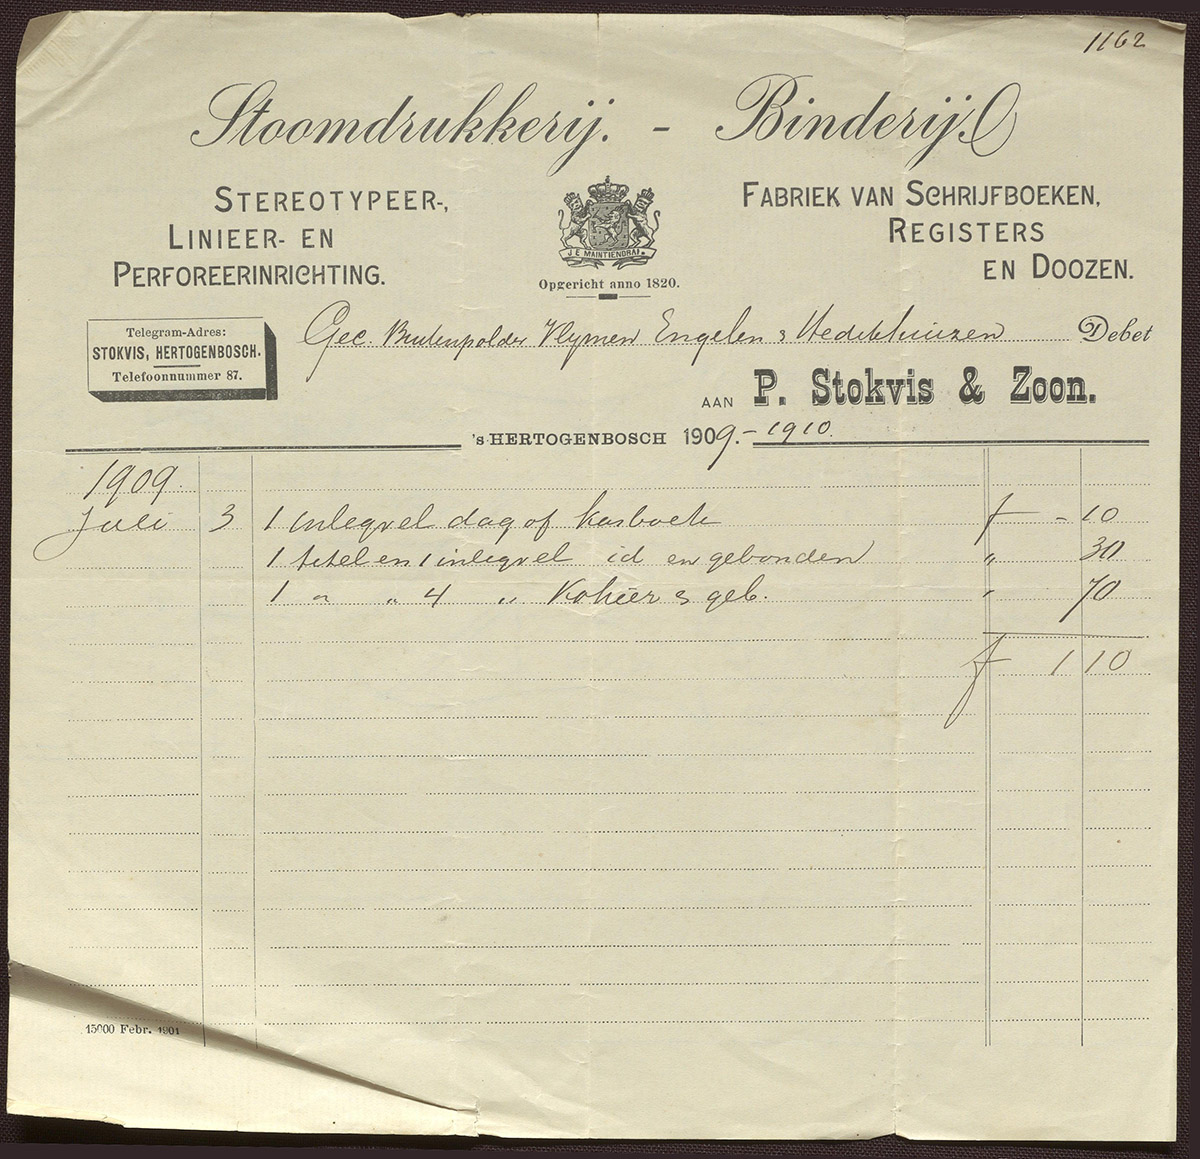 1162
Stoomdrukkerij. - Binderij.
STEREOTYPEER-,
LINIEER- EN
PERFOREERINRICHTING.
JE MAINTIENDRAI.
Opgericht anno 1820.
FABRIEK VAN SCHRIJFBOEKEN,
REGISTERS
EN DOOZEN.
Telegram-Adres:
STOKVIS, HERTOGENBOSCH.
Telefoonnummer 87.
Gec. Beutenpolder Vlymen Engelen & Hedikhuizen Debet
AAN P. Stokvis & Zoon.
's HERTOGENBOSCH 1909.-1910.
1909.
Juli 3 1 inlegvel dag of kasboek f - 10
1 titel en 1 inlegvel id en gebonden " 30
1 " " 4 " Kohier & geb. " 70
f 1 10
15000 Febr. 1901